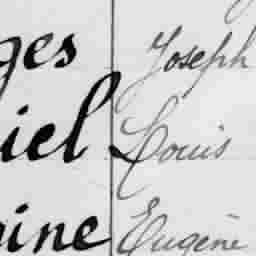 ges Joseph
iel Louis
oine Eugène